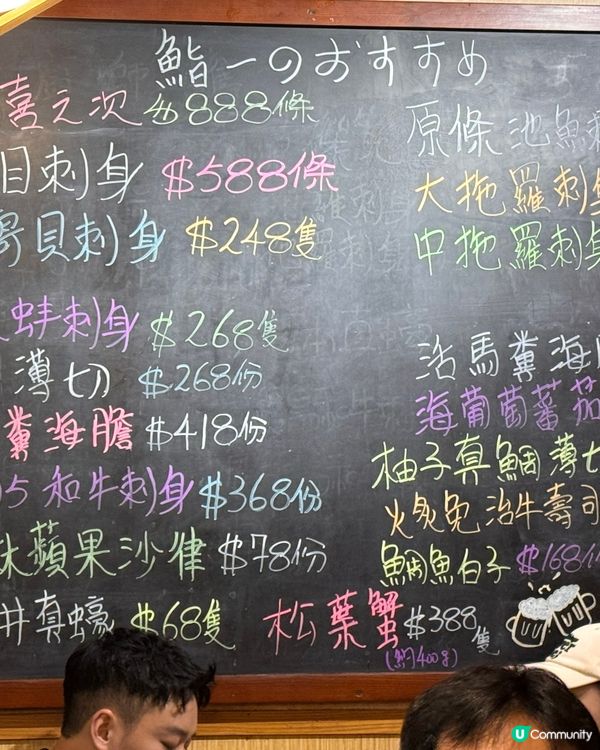 鮨一のおすすめ
喜之次 $888條
目刺身 $588條
貝刺身 $248隻
蚌刺身 $268隻
薄切 $268份
糞海膽 $418份
5 和牛刺身 $368份
蘋果沙律 $78份
井真蠔 $68隻
原條池魚刺
大拖羅刺身
中拖羅刺身
活馬糞海膽
海葡萄蕃茄
柚子真鯛薄切
火炙免治牛壽司
鯛魚白子 $168份
松葉蟹 $388隻
(約400g)
U Community